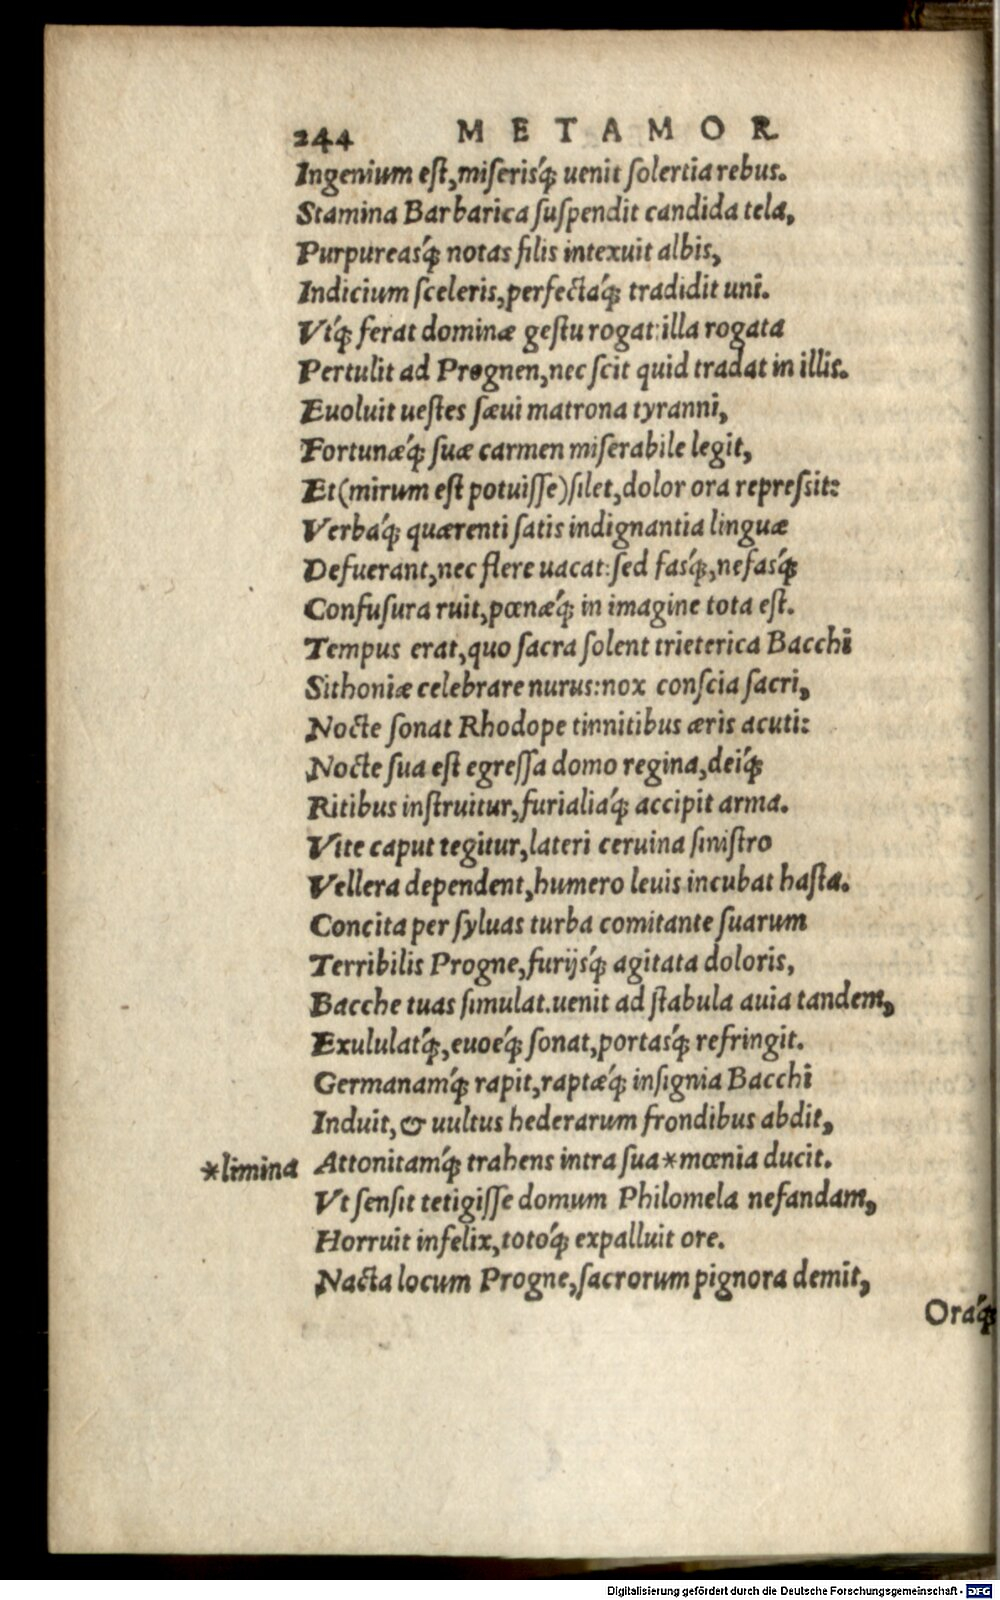 244 METAMOR
Ingenium eſt, miſerisq́; uenit ſolertia rebus.
Stamina Barbarica ſuſpendit candida tela,
Purpureasq́; notas filis intexuit albis,
Indicium ſceleris, perfectaq́; tradidit uni.
Vtq́; ferat dominæ geſtu rogat: illa rogata
Pertulit ad Prognen, nec ſcit quid tradat in illis.
Euoluit ueſtes ſæui matrona tyranni,
Fortunæq́; ſuæ carmen miſerabile legit,
Et (mirum eſt potuiſſe) ſilet, dolor ora repreſsit:
Verbaq́; quærenti ſatis indignantia linguæ
Defuerant, nec flere uacat: ſed fasq́;, nefasq́;
Confuſura ruit, pœnæq́; in imagine tota eſt.
Tempus erat, quo ſacra ſolent trieterica Bacchi
Sithoniæ celebrare nurus: nox conſcia ſacri,
Nocte ſonat Rhodope tinnitibus æris acuti:
Nocte ſua eſt egreſſa domo regina, deiq́;
Ritibus inſtruitur, furialiaq́; accipit arma.
Vite caput tegitur, lateri ceruina ſiniſtro
Vellera dependent, humero leuis incubat haſta.
Concita per ſyluas turba comitante ſuarum
Terribilis Progne, furijsq́; agitata doloris,
Bacche tuas ſimulat. uenit ad ſtabula auia tandem,
Exululatq́;, euoeq́; ſonat, portasq́; refringit.
Germanamq́; rapit, raptæq́; inſignia Bacchi
Induit, & uultus hederarum frondibus abdit,
*limina Attonitamq́; trahens intra ſua * mœnia ducit.
Vt ſenſit tetigiſſe domum Philomela nefandam,
Horruit infelix, totoq́; expalluit ore.
Nacta locum Progne, ſacrorum pignora demit,
Oraq́;
Digitalisierung gefördert durch die Deutsche Forschungsgemeinschaft - DFG